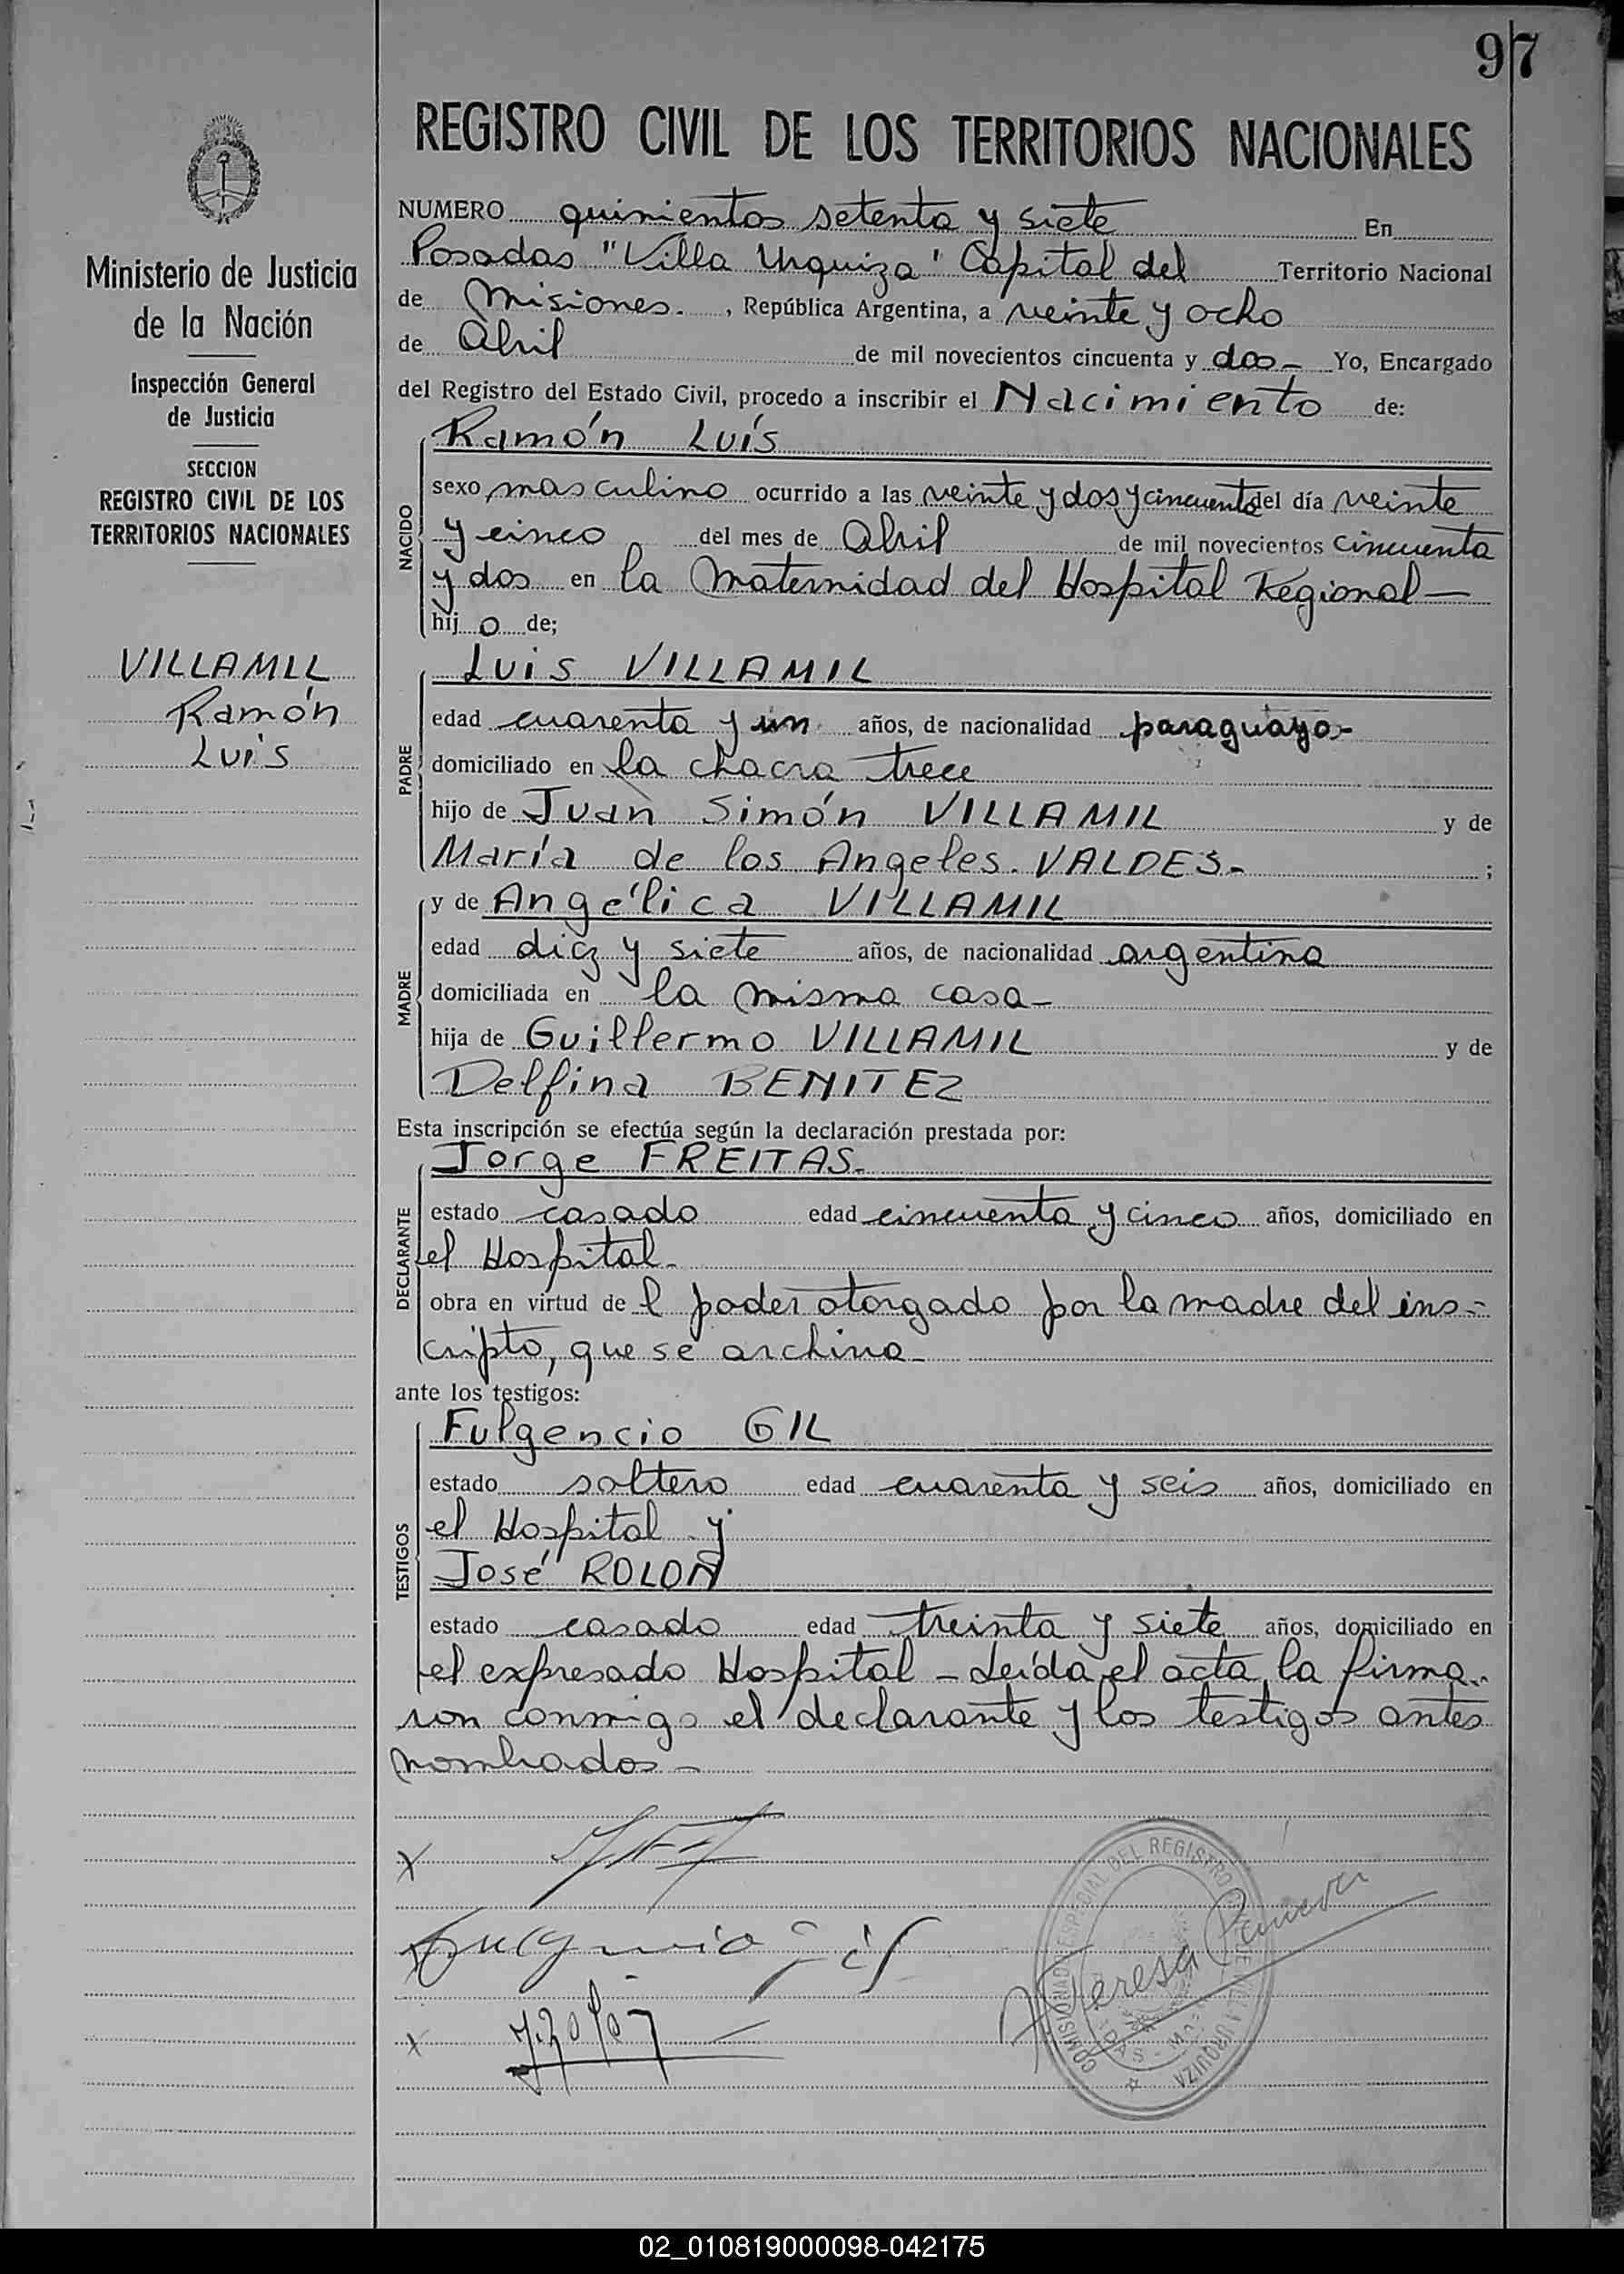 97
REGISTRO CIVIL DE LOS TERRITORIOS NACIONALES
Ministerio de Justicia
de la Nación
Inspección General
de Justicia
SECCION
REGISTRO CIVIL DE LOS
TERRITORIOS NACIONALES
VILLAMIL
Ramón
Luis
NUMERO quinientos setenta y siete En
Posadas "Villa Urquiza" Capital del Territorio Nacional
de Misiones. , República Argentina, a veinte y ocho
de Abril de mil novecientos cincuenta y dos - Yo, Encargado
del Registro del Estado Civil, procedo a inscribir el Nacimiento de:
NACIDO
Ramón Luís
sexo masculino ocurrido a las veinte y dos y cincuenta del día veinte
y cinco del mes de Abril de mil novecientos cincuenta
y dos en la Maternidad del Hospital Regional —
hijo de;
PADRE
Luis VILLAMIL
edad cuarenta y un años, de nacionalidad paraguayo-
domiciliado en la chacra trece
hijo de Juan Simón VILLAMIL y de
María de los Angeles. VALDES- ;
MADRE
y de Angélica VILLAMIL
edad diez y siete años, de nacionalidad argentina
domiciliada en la misma casa-
hija de Guillermo VILLAMIL y de
Delfina BENITEZ
Esta inscripción se efectúa según la declaración prestada por:
DECLARANTE
Jorge FREITAS-
estado casado edad cincuenta y cinco años, domiciliado en
el Hospital-
obra en virtud de l poder otorgado por la madre del ins-
cripto, que se archiva-
ante los testigos:
TESTIGOS
Fulgencio GIL
estado soltero edad cuarenta y seis años, domiciliado en
el Hospital y
José ROLON
estado casado edad treinta y siete años, domiciliado en
el expresado Hospital - Leída el acta, la firma-
ron conmigo el declarante y los testigos antes
nombrados-
X
Fulgencio Gil
X
COMISIONADO ESPECIAL DEL REGISTRO CIVIL DE VILLA URQUIZA
Teresa
02_010819000098-042175